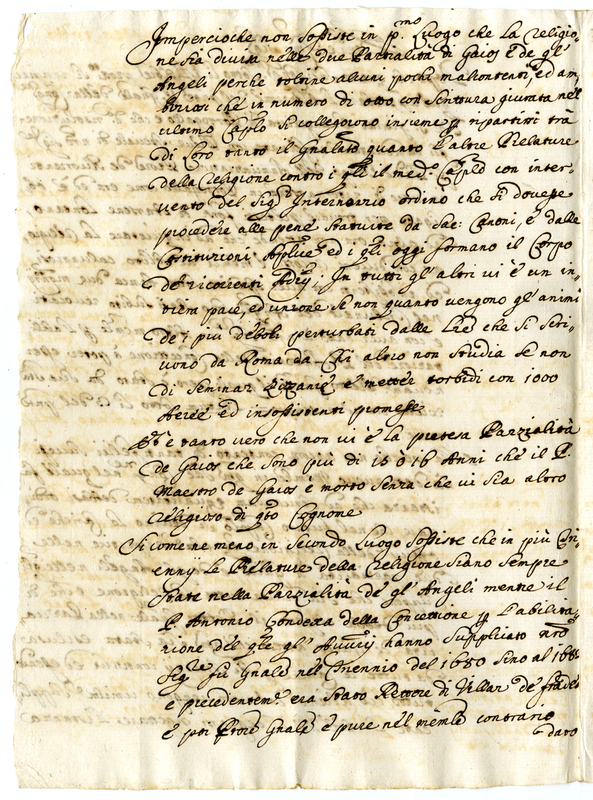 Impercioche non sossiste in p.mo Luogo che la Religio-
ne sia divisa nelle due Parzialità di Gaios e de gl'
Angeli perche toltine alcuni pochi malcontenti, ed am-
biziosi che in numero di otto con scrittura giurata nel
ultimo Caplo si collegorono insieme p ripartirsi trà
di Loro tanto il Gnalato quanto l'altre Prelature
della Religione contro i qli il med.o Caplo con inter-
vento del Sig.r Internunzio ordinò che si dovesse
procedere alle pene statuite da Sac: Canoni, e dalle
Costituzioni Applice ed i qli oggi formano il Corpo
de ricorrenti Adrij; In tutti gl'altri vi è un in-
tiera pace, ed unione se non quanto vengono gl'animi
de i più deboli perturbati dalle Lre che si scri-
vono da Roma da Chi altro non studia se non
di seminar Zizanie e metter torbidi con 1000
Aeree ed insossistenti promesse
Et è tanto vero che non vi è la pretesa Parzialità
de Gaios che sono più di 15 ò 16 Anni che il P.
Maestro de Gaios è morto senza che vi sia altro
religioso di qto Cognome
Si come ne meno in secondo Luogo sossiste che in più Tri-
enny le Prelature della Religione siano sempre
state nella Parzialità de gl'Angeli mentre il
P. Antonio della Concettione p l'abilita-
zione del qle gl' hanno supplicato nro
Sig.re fù Gnale nel Triennio del 1680 sino al
e precedentem.e era stato Rettore di Villar de frades
e poi Prore Gnale e pure nel memle contrario
dato